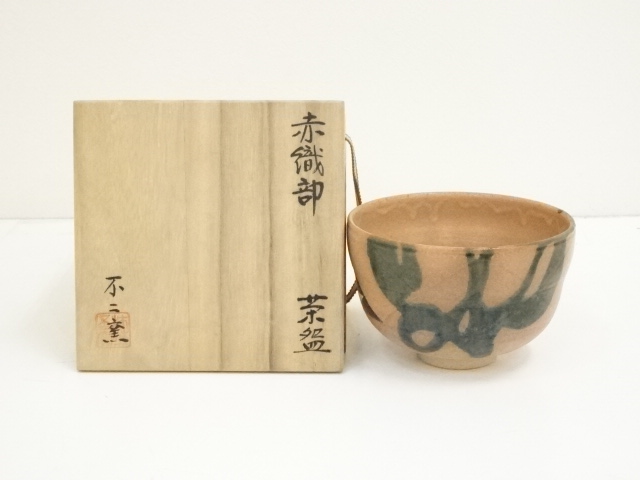 赤織部 茶盌
不二窯